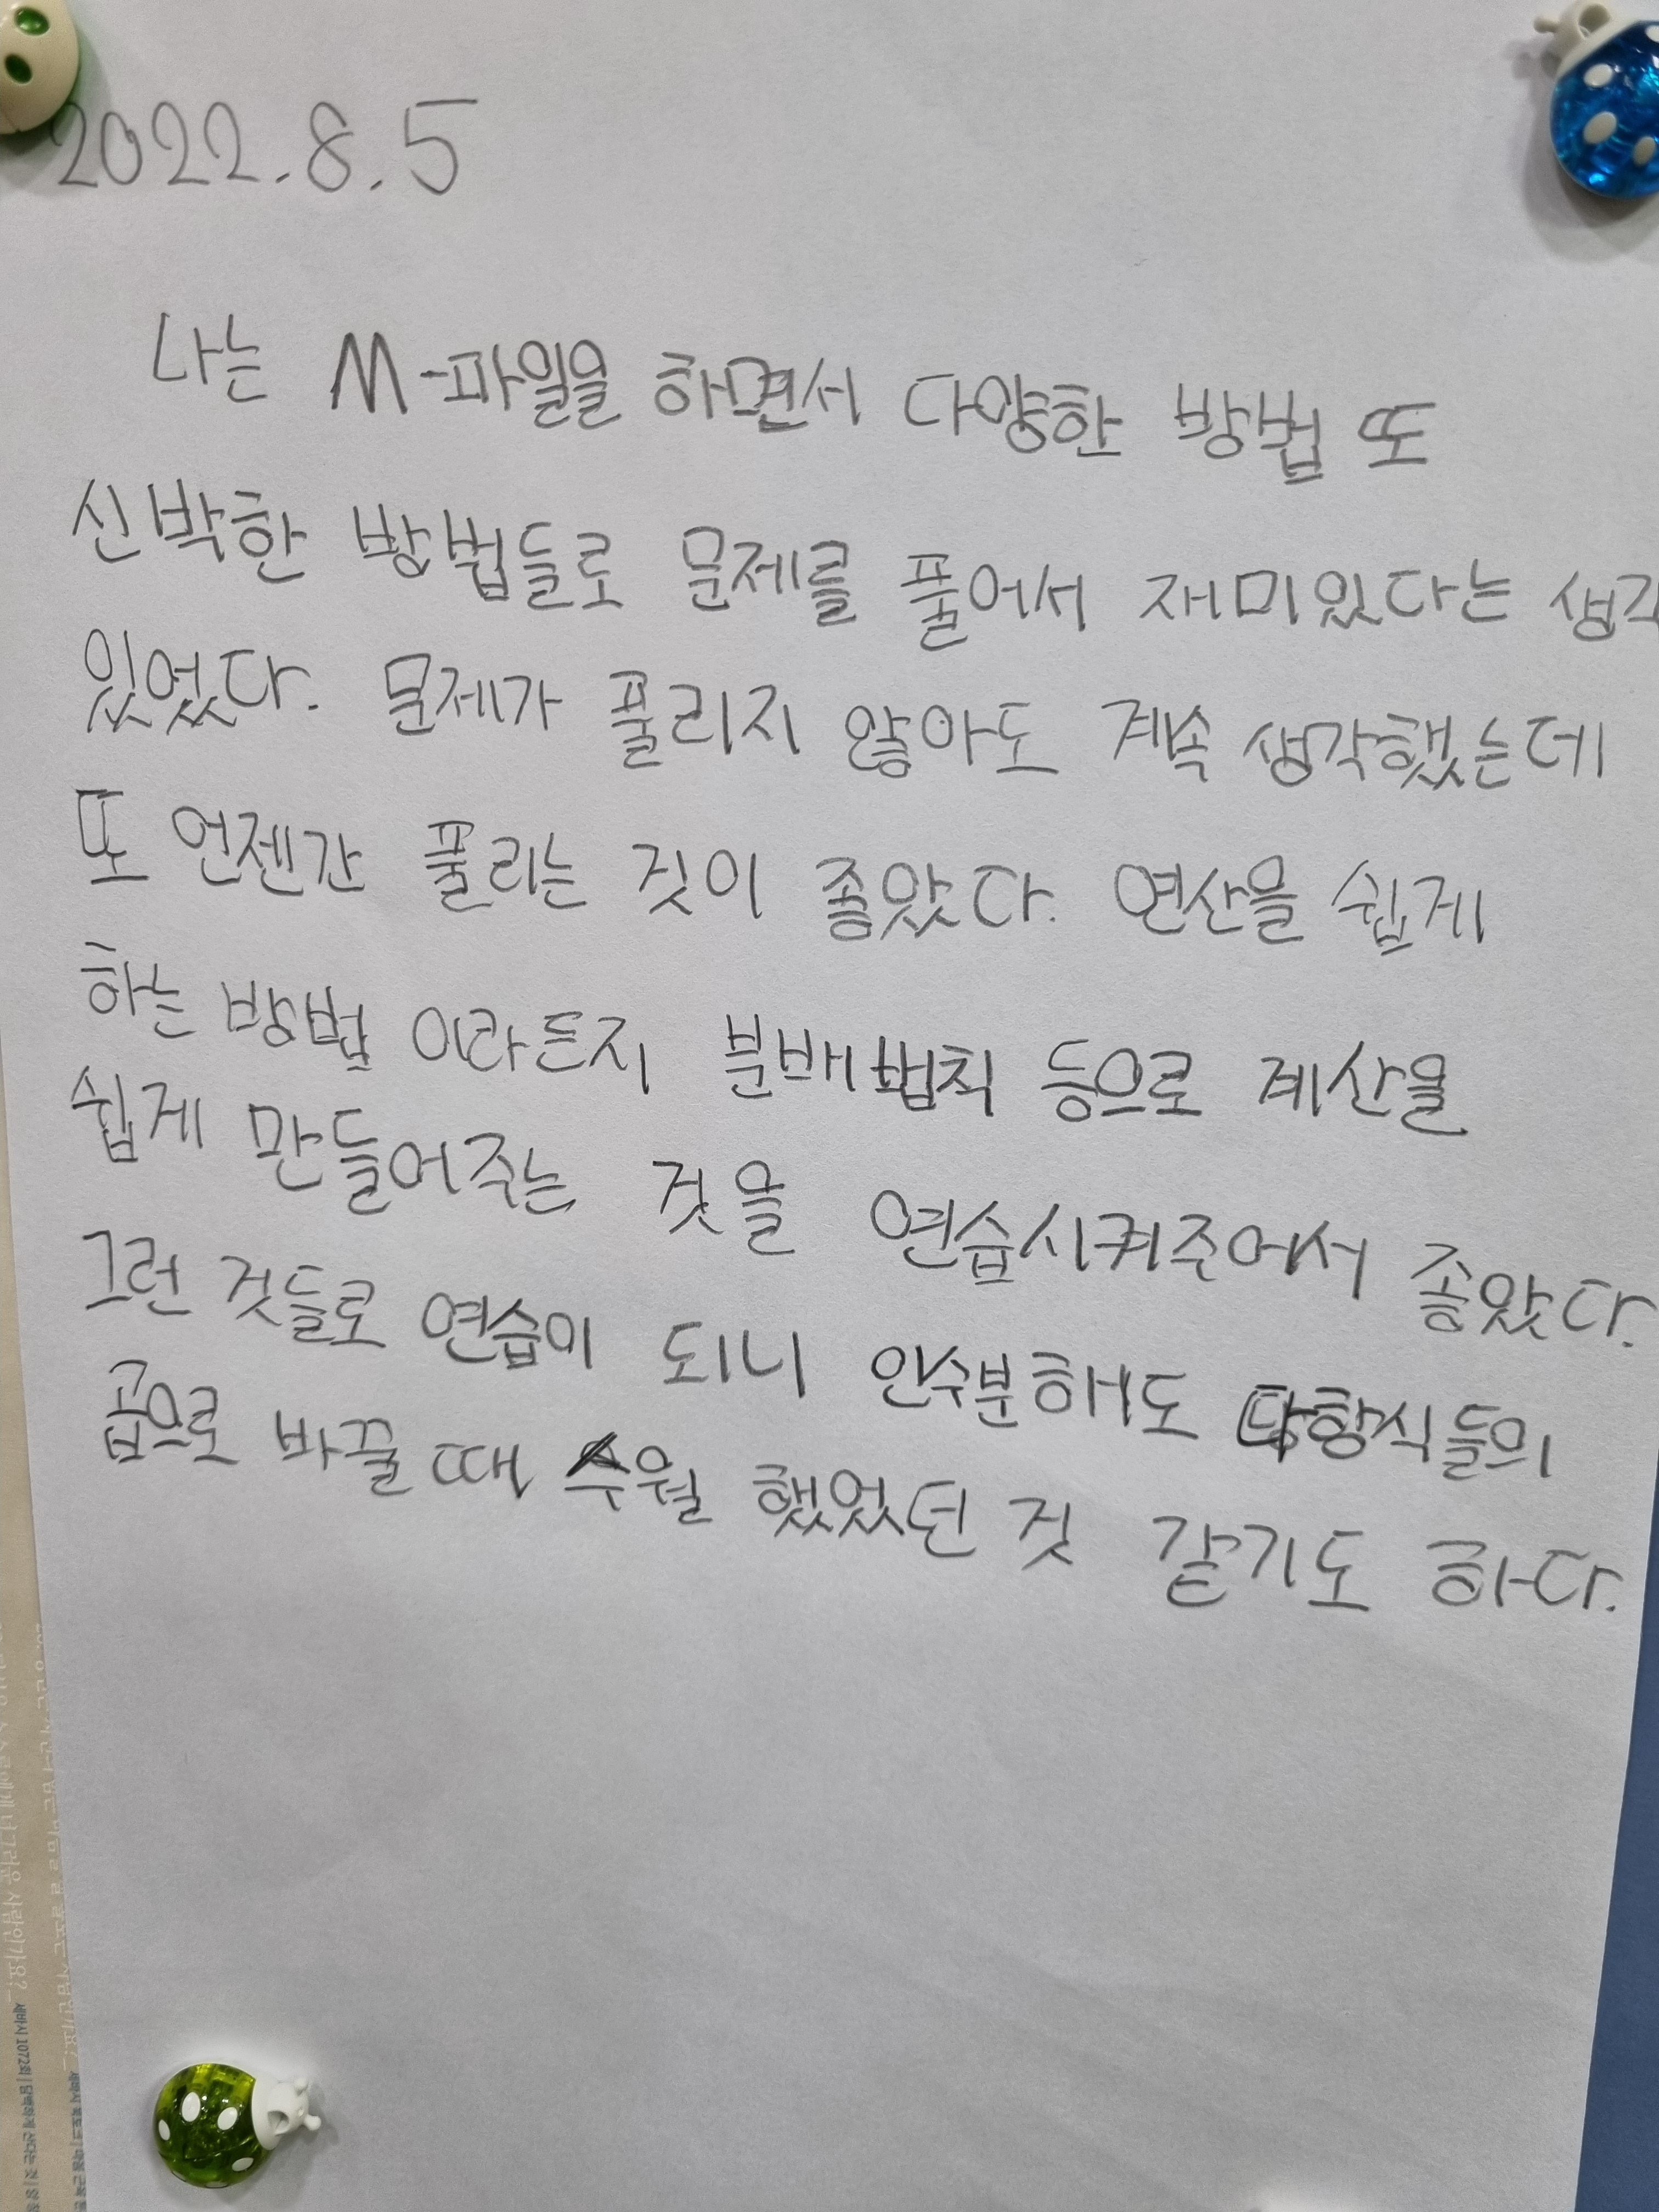 2022.8.5
나는 M-파일을 하면서 다양한 방법 또
신박한 방법들로 문제를 풀어서 재미있다는 생각
있었다. 문제가 풀리지 않아도 계속 생각했는데
또 언젠간 풀리는 것이 좋았다. 연산을 쉽게
하는 방법 이라든지 분배법칙 등으로 계산을
쉽게 만들어주는 것을 연습시켜주어서 좋았다.
그런 것들로 연습이 되니 인수분해도 다항식들의
곱으로 바꿀 때 수월 했었던 것 같기도 하다.